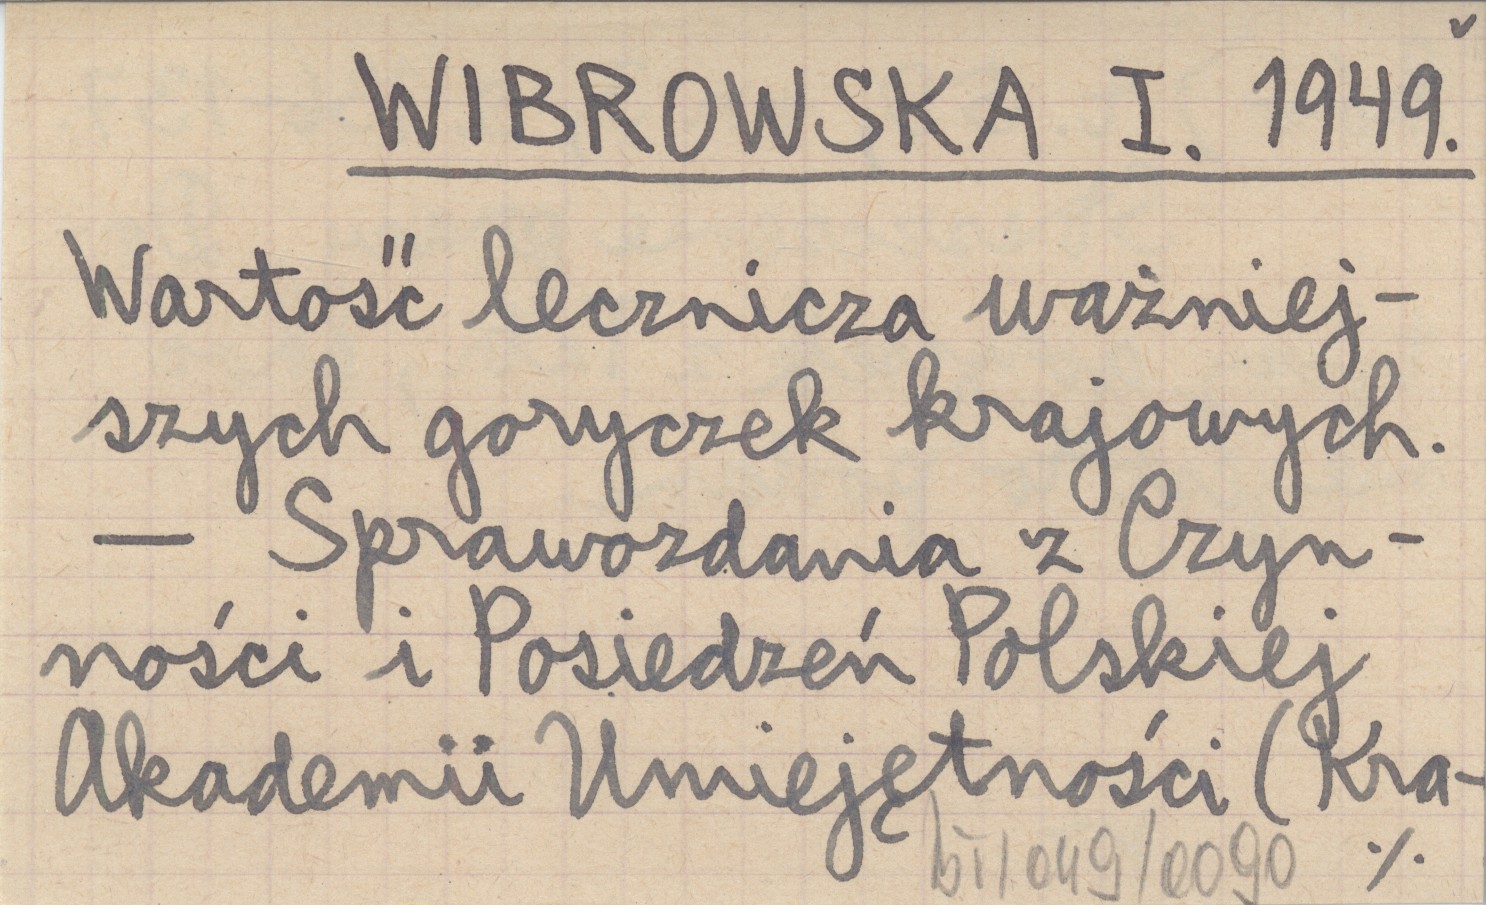 WIBROWSKA I. 1949.
Wartość lecznicza ważniej-
szych goryczek krajowych.
— Sprawozdania z Czyn-
ności i Posiedzeń Polskiej
Akademii Umiejętności (Kra-
BI/049/0090 ·/·